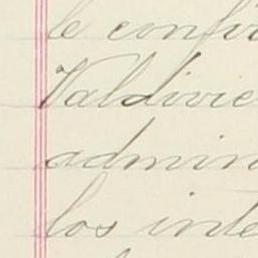 le confir
Valdivie
admin
los inte